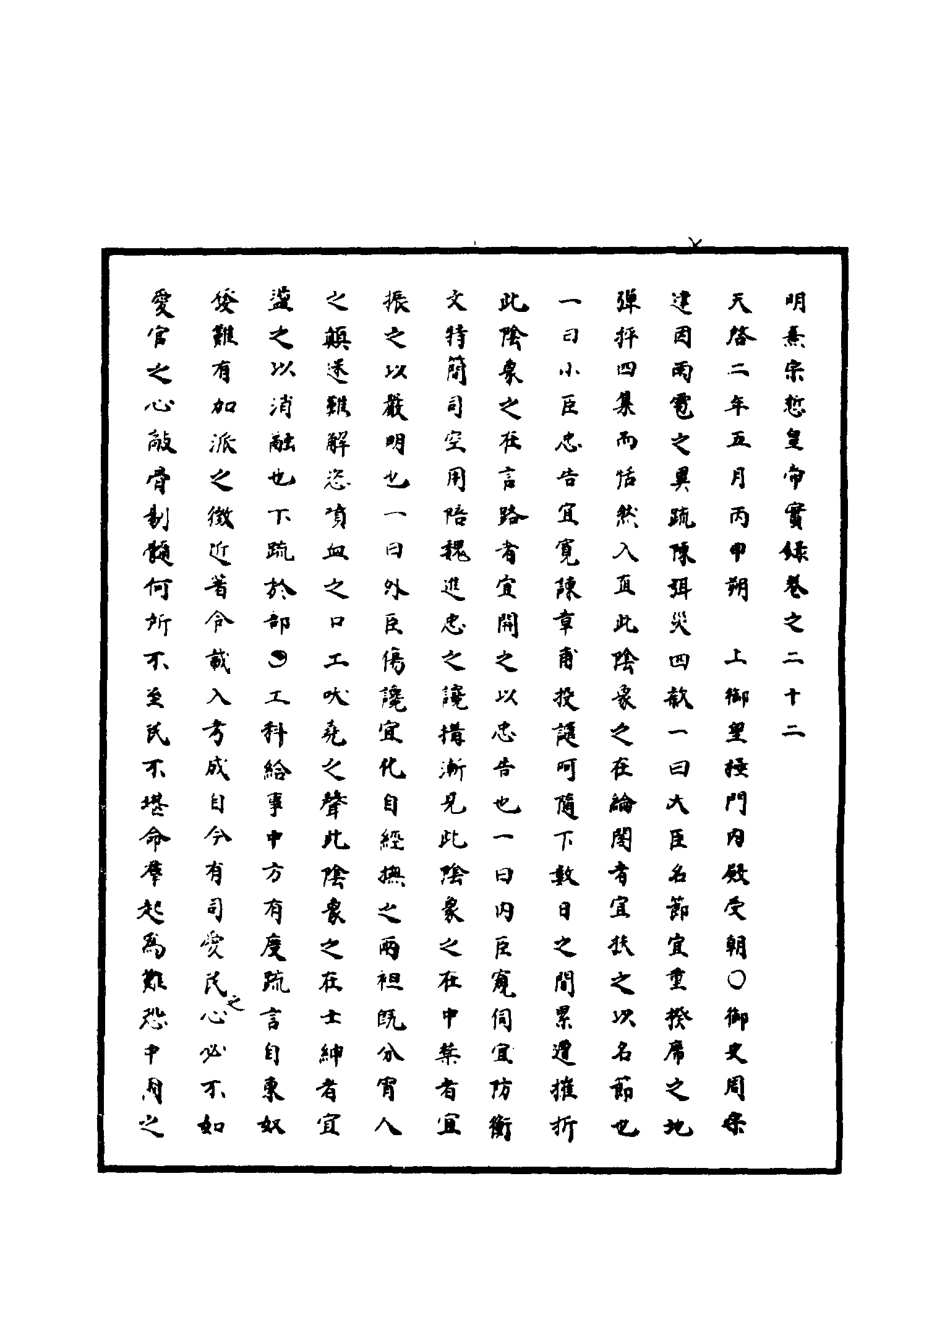 明熹宗悊皇帝實錄卷之二十二
天啓二年五月丙申朔　上御皇極門內殿受朝○御史周宗
建因雨雹之異疏陳弭災四款一曰大臣名節宜重揆席之地
彈抨四集而恬然入直此陰象之在論閣者宜扶之以名節也
一曰小臣忠告宜寬諫章甫投譴呵隨下數日之間累遭摧折
此陰象之在言路者宜開之以忠告也一曰內臣窺伺宜防衡
文特簡司空用陪魏進忠之讒搆漸見此陰象之在中禁者宜
振之以嚴明也一曰外臣傷讒宜化自經撫之兩袒旣分宵人
之顛迷難解恣噴血之口工吠堯之聲此陰象之在士紳者宜
盪之以消融也下疏於部○工科給事中方有度疏言自東奴
發難有加派之徵近著令載入考成自今有司愛民之心必不如
愛官之心敲骨剔髓何所不至民不堪命羣起爲難恐中用之